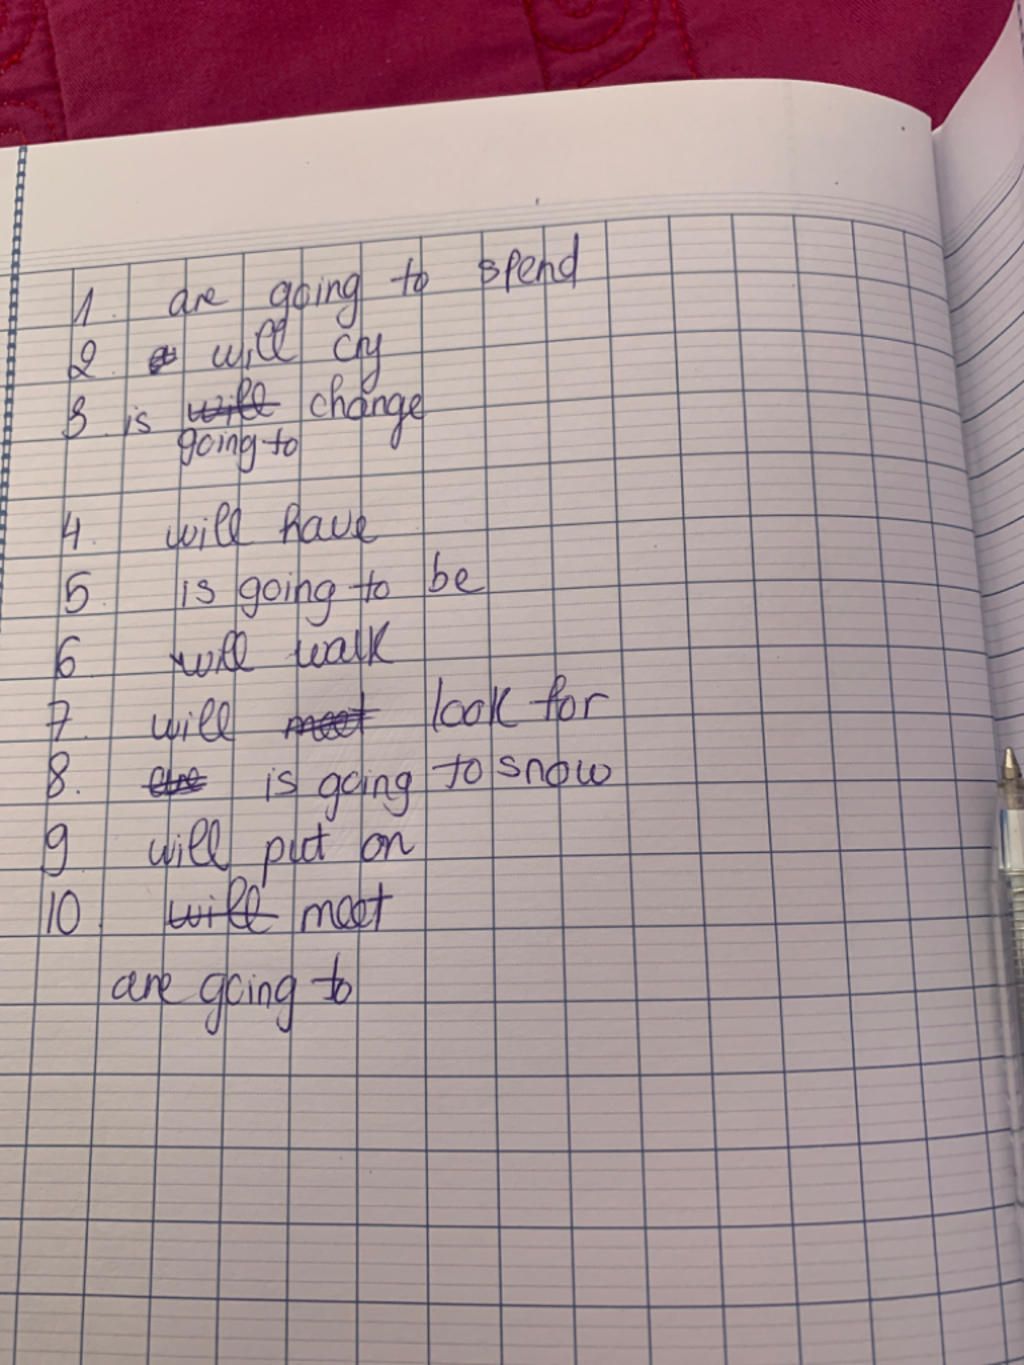 1. are going to spend
2. will cry
3 is will change
going to
4. will have
5. is going to be
6 will walk
7. will meet look for
8. are is going to snow
9 will put on
10. will meet
are going to